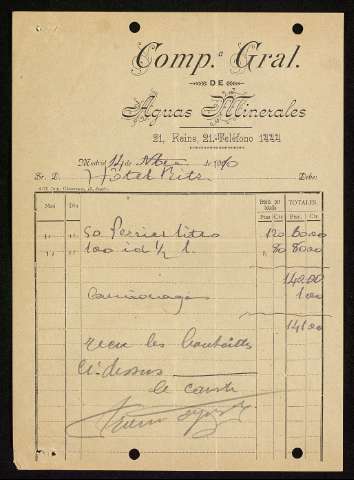 Comp.ª Gral.
DE
Aguas Minerales
21, Reina, 21.-Teléfono
Madrid 14 de de 1910
Sr. D. Hôtel Ritz Debe:
Mes Día Precio por botella TOTALES
Ptas Cts Ptas Cts
50 Perrier litros 120 60 00
100 id ½ l. 80 80 00
140 00
Camionnage 1 00
141 00
recu les bouteilles
ci-dessus
le comte